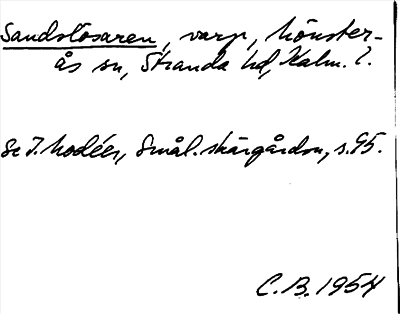 Sandslösaren, varp, Mönster-
ås sn, Stranda hd, Kalm. l.
Se I. Modéer, Smål. skärgårdsn, s. 95.
C.B. 1954